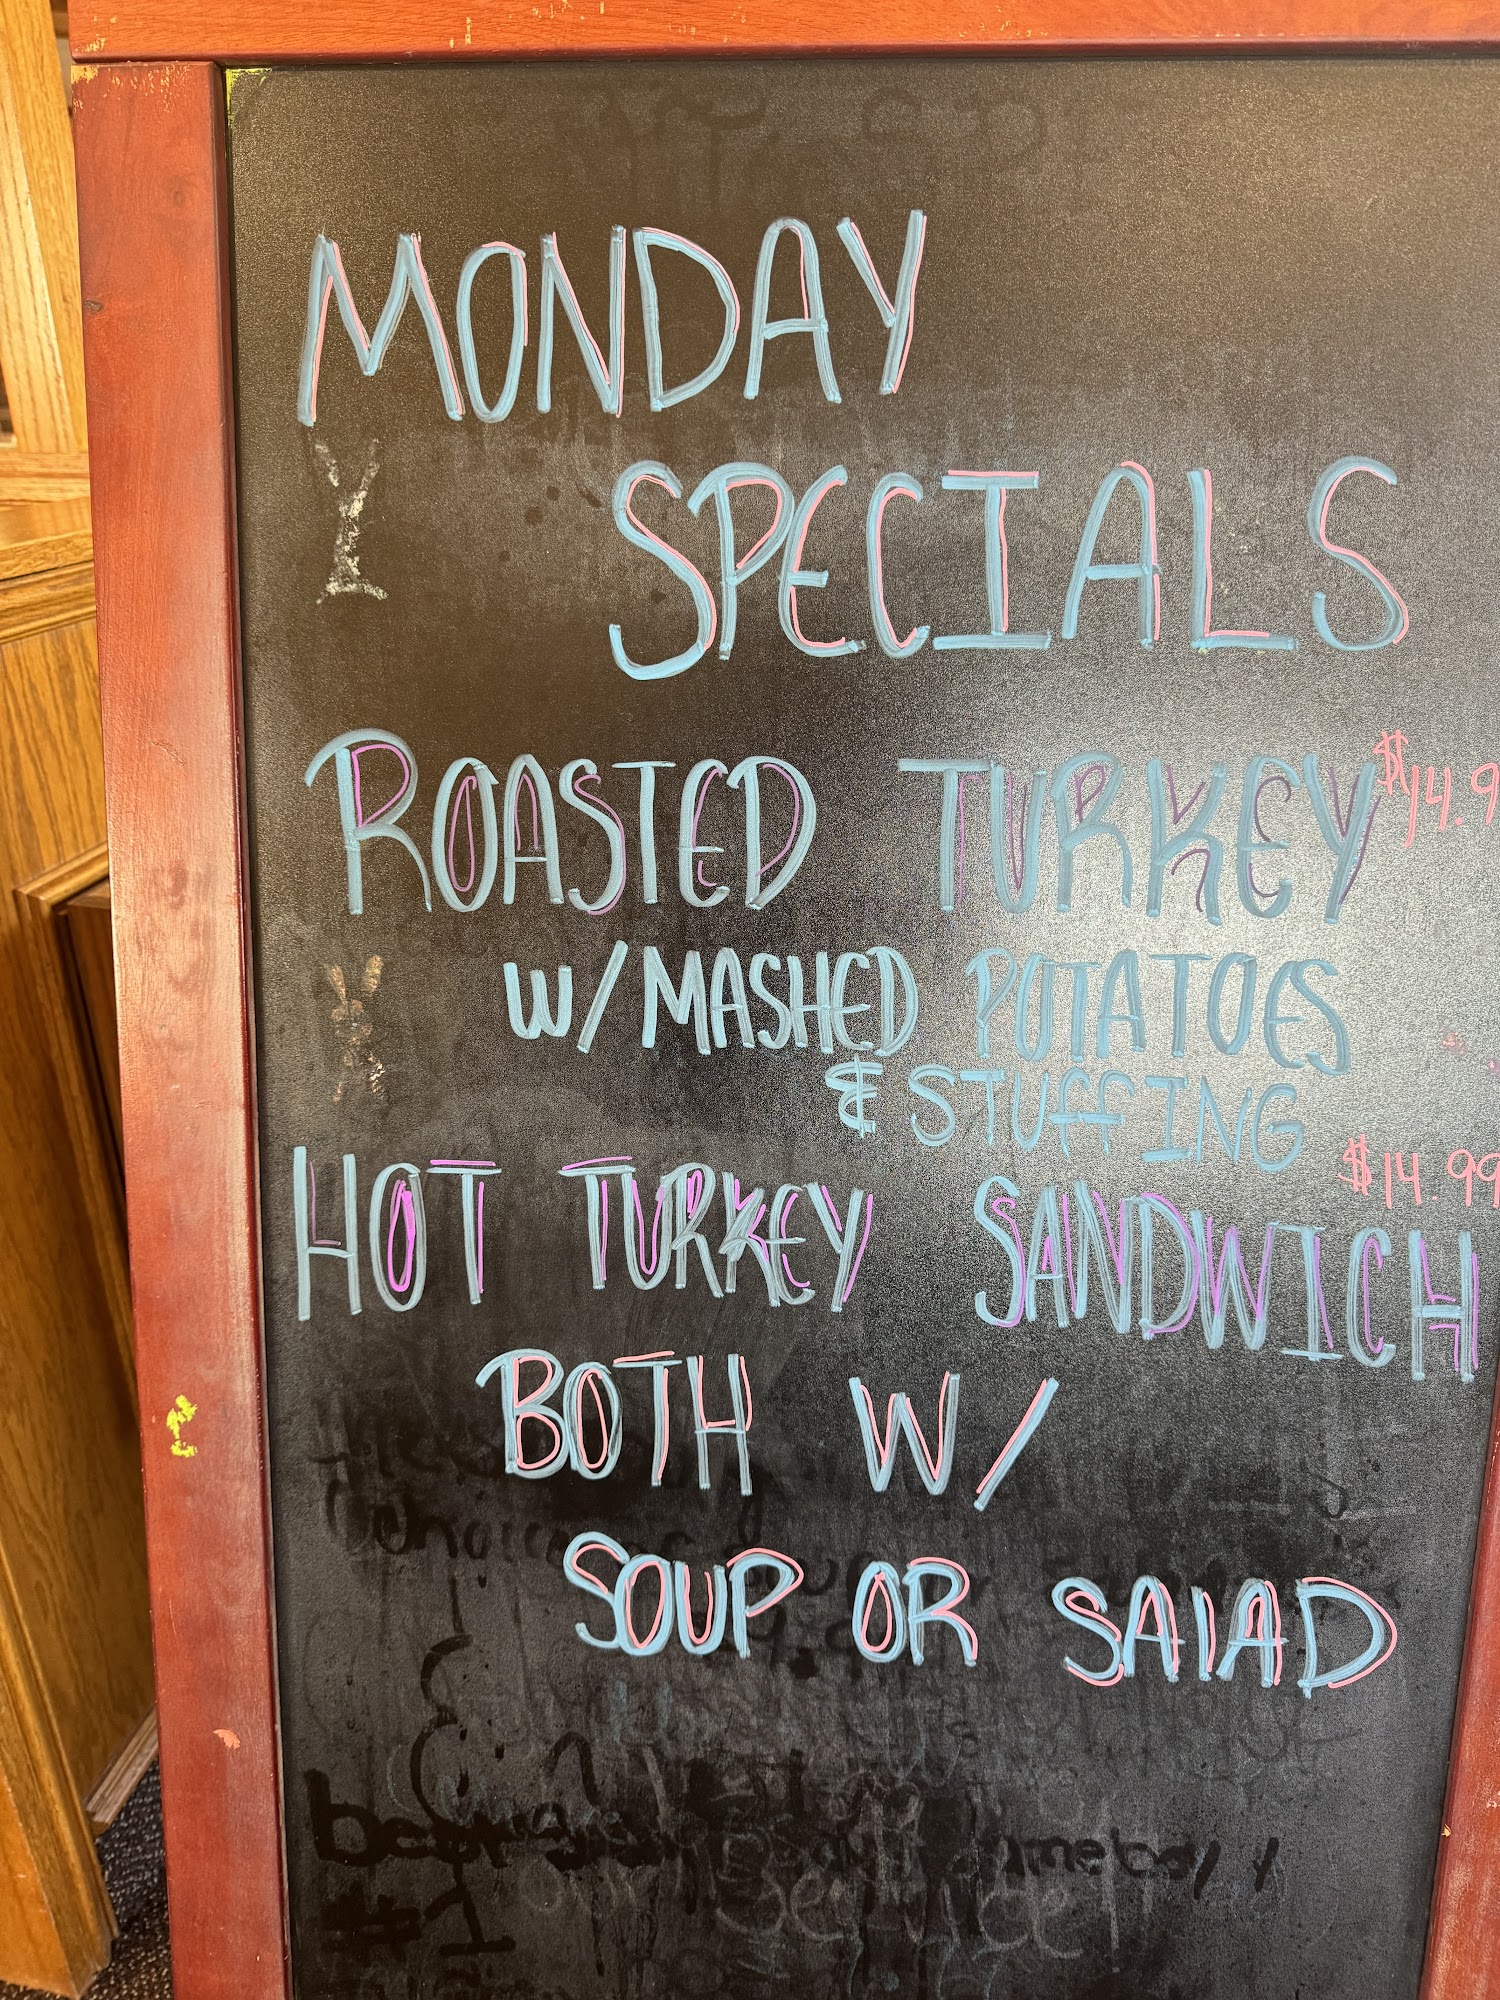 MONDAY
SPECIALS
ROASTED TURKEY $14.9
W/MASHED POTATOES
& STUFFING
HOT TURKEY SANDWICH $14.99
BOTH W/
SOUP OR SALAD
#1